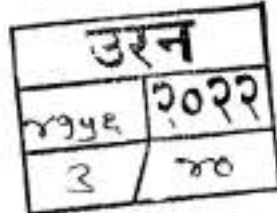 उरन
४१५६ २०२२
३ / ४०